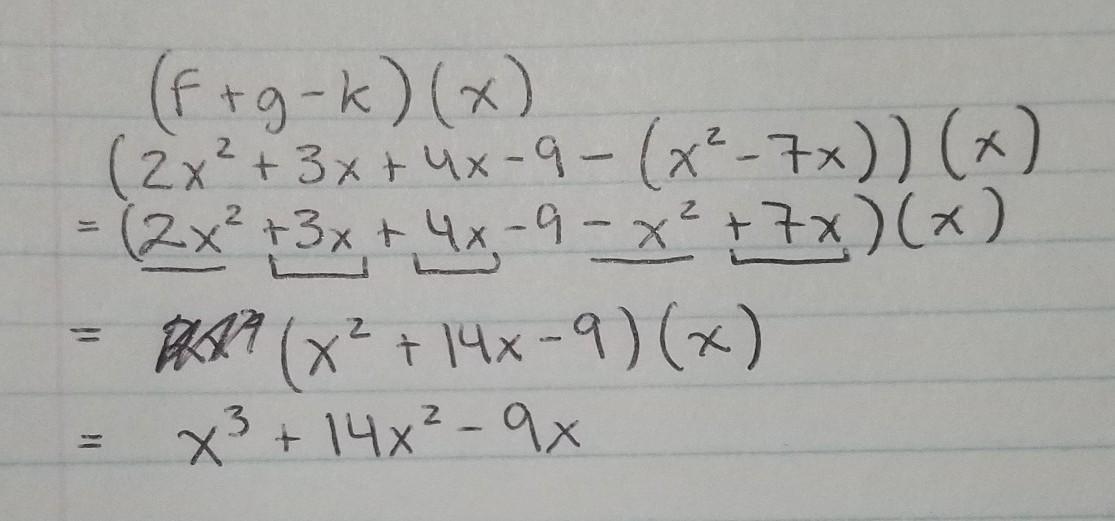 (f+g-k)(x)
(2x²+3x+4x-9-(x²-7x))(x)
=(2x²+3x+4x-9-x²+7x)(x)
= (x²+14x-9)(x)
= x³+14x²-9x